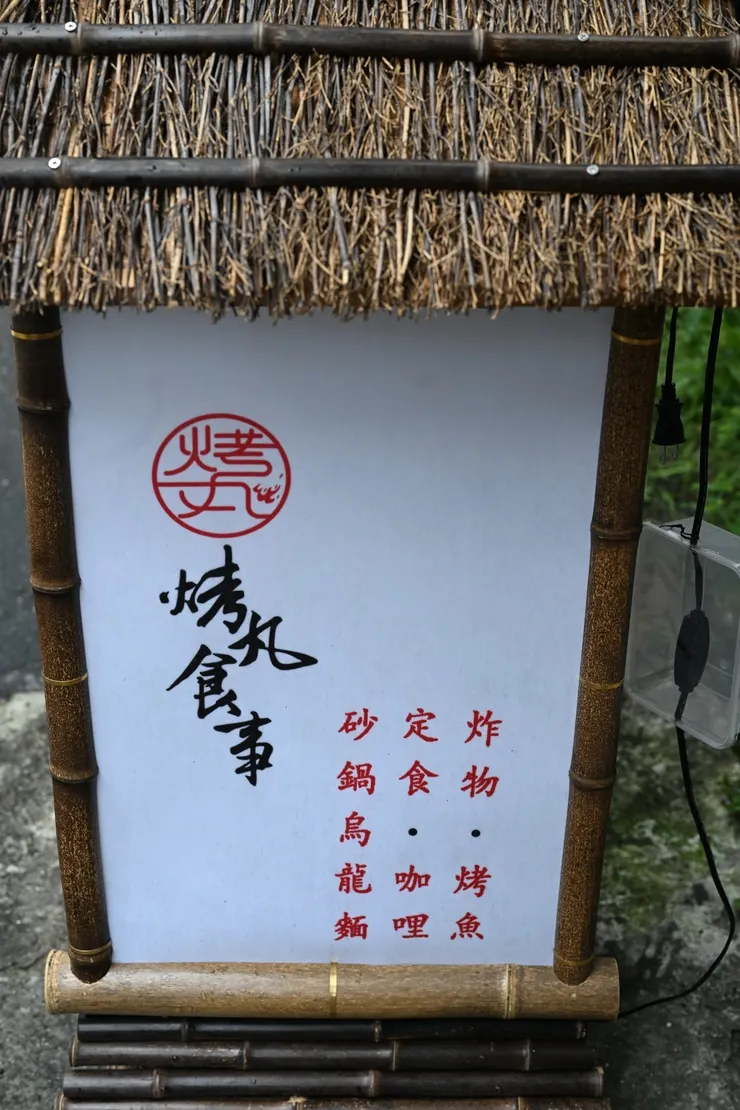 烤丸
烤丸食事
炸物・烤魚
定食・咖哩
砂鍋烏龍麵